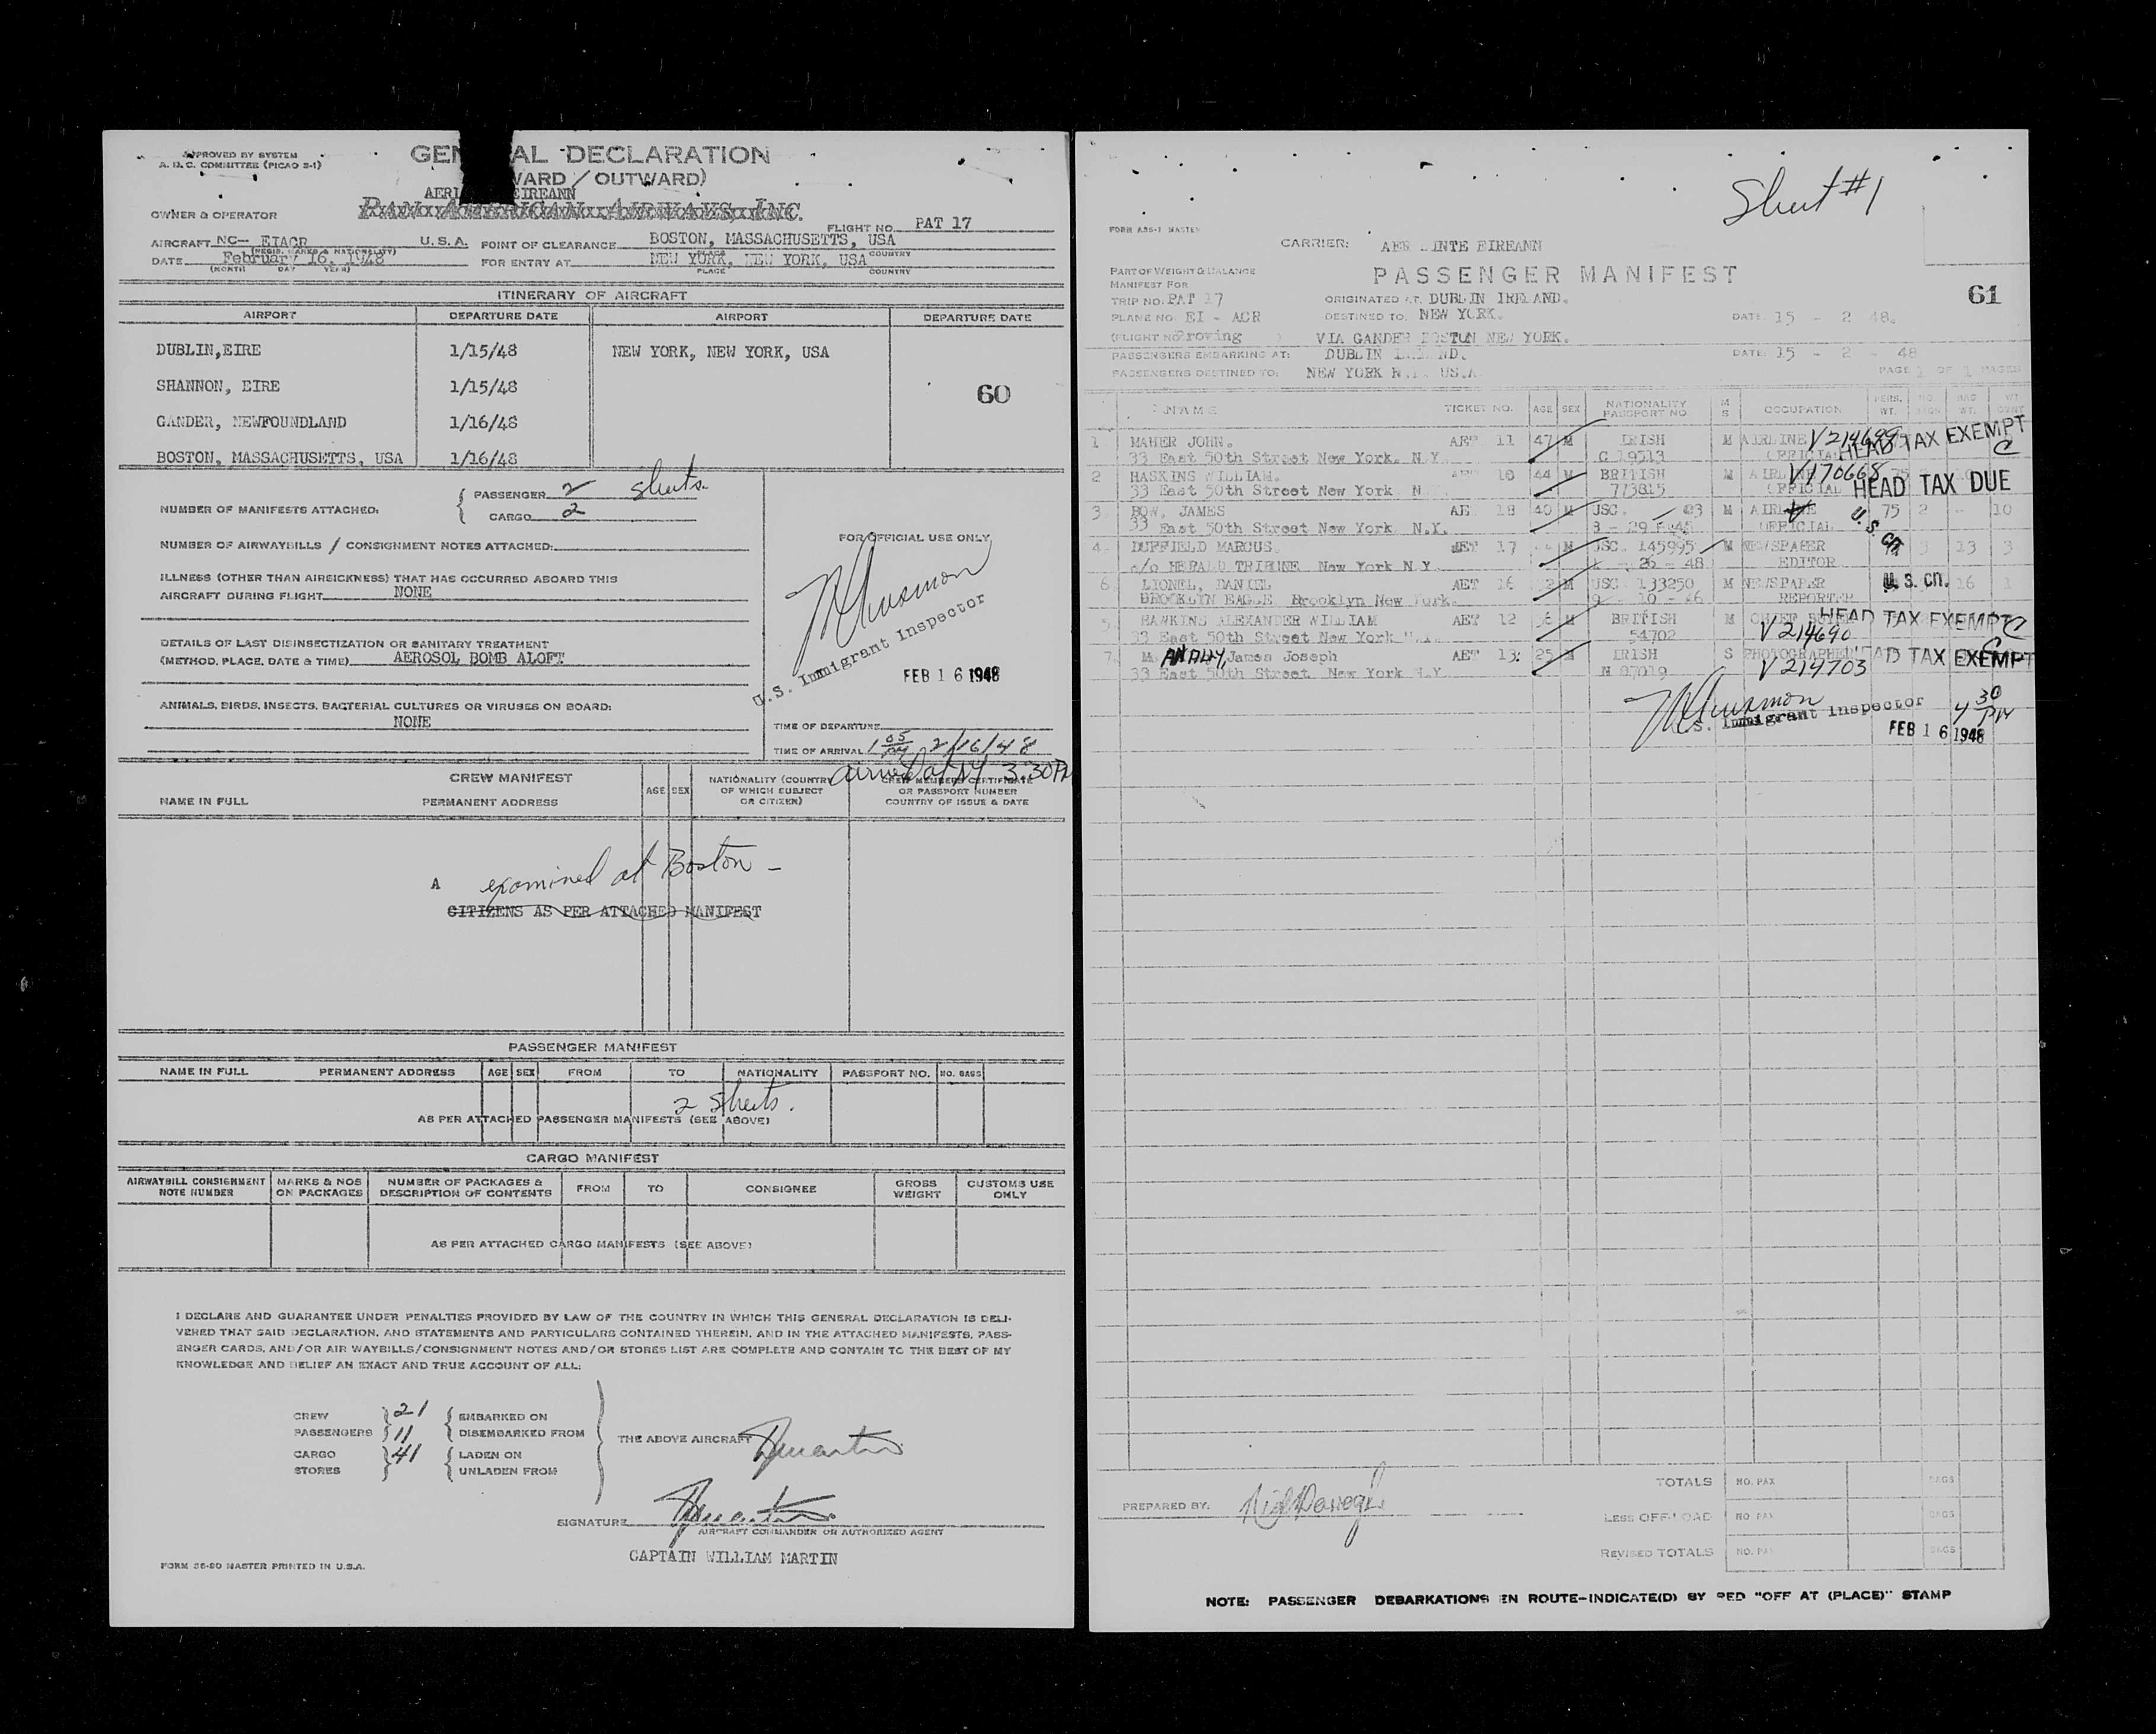 APPROVED BY SYSTEM
A. D. C. COMMITTEE (PICAO S-1)
GEN AL DECLARATION
WARD / OUTWARD)
AERL EIREANN
OWNER & OPERATOR PAN AMERICAN AIRWAYS, INC.
FLIGHT NO. PAT 17
AIRCRAFT NC- EIACR U.S.A. POINT OF CLEARANCE BOSTON, MASSACHUSETTS, USA
(REGIS. MARKS & NATIONALITY) PLACE COUNTRY
DATE February 16, 1948 FOR ENTRY AT NEW YORK, NEW YORK, USA
(MONTH DAY YEAR) PLACE COUNTRY
ITINERARY OF AIRCRAFT
AIRPORT DEPARTURE DATE AIRPORT DEPARTURE DATE
DUBLIN,EIRE 1/15/48 NEW YORK, NEW YORK, USA
SHANNON, EIRE 1/15/48
60
GANDER, NEWFOUNDLAND 1/16/48
BOSTON, MASSACHUSETTS, USA 1/16/48
NUMBER OF MANIFESTS ATTACHED: PASSENGER 2 sheets.
CARGO 2
NUMBER OF AIRWAYBILLS / CONSIGNMENT NOTES ATTACHED:
FOR OFFICIAL USE ONLY
ILLNESS (OTHER THAN AIRSICKNESS) THAT HAS OCCURRED ABOARD THIS
AIRCRAFT DURING FLIGHT NONE
U.S. Immigrant Inspector
DETAILS OF LAST DISINSECTIZATION OR SANITARY TREATMENT
(METHOD, PLACE, DATE & TIME) AEROSOL BOMB ALOFT
FEB 16 1948
ANIMALS, BIRDS, INSECTS, BACTERIAL CULTURES OR VIRUSES ON BOARD:
NONE
TIME OF DEPARTURE
TIME OF ARRIVAL 1 05 PM 2/16/48
arrived at NY 3:30 PM
CREW MANIFEST
NAME IN FULL PERMANENT ADDRESS AGE SEX NATIONALITY (COUNTRY OF WHICH SUBJECT OR CITIZEN) CREW MEMBERS CERTIFICATE OR PASSPORT NUMBER COUNTRY OF ISSUE & DATE
A examined at Boston -
CITIZENS AS PER ATTACHED MANIFEST
PASSENGER MANIFEST
NAME IN FULL PERMANENT ADDRESS AGE SEX FROM TO NATIONALITY PASSPORT NO. NO. BAGS
2 Sheets.
AS PER ATTACHED PASSENGER MANIFESTS (SEE ABOVE)
CARGO MANIFEST
AIRWAYBILL CONSIGNMENT NOTE NUMBER MARKS & NOS ON PACKAGES NUMBER OF PACKAGES & DESCRIPTION OF CONTENTS FROM TO CONSIGNEE GROSS WEIGHT CUSTOMS USE ONLY
AS PER ATTACHED CARGO MANIFESTS (SEE ABOVE)
I DECLARE AND GUARANTEE UNDER PENALTIES PROVIDED BY LAW OF THE COUNTRY IN WHICH THIS GENERAL DECLARATION IS DELI-
VERED THAT SAID DECLARATION, AND STATEMENTS AND PARTICULARS CONTAINED THEREIN, AND IN THE ATTACHED MANIFESTS, PASS-
ENGER CARDS, AND/OR AIR WAYBILLS/CONSIGNMENT NOTES AND/OR STORES LIST ARE COMPLETE AND CONTAIN TO THE BEST OF MY
KNOWLEDGE AND BELIEF AN EXACT AND TRUE ACCOUNT OF ALL:
CREW 21 EMBARKED ON
PASSENGERS 11 DISEMBARKED FROM
THE ABOVE AIRCRAFT
CARGO 41 LADEN ON
STORES UNLADEN FROM
SIGNATURE
AIRCRAFT COMMANDER OR AUTHORIZED AGENT
CAPTAIN WILLIAM MARTIN
FORM 36-80 MASTER PRINTED IN U.S.A.
Sheet #1
CARRIER: AER LINTE EIREANN
PASSENGER MANIFEST
PART OF WEIGHT & BALANCE
MANIFEST FOR
61
TRIP NO. PAT 17 ORIGINATED AT. DUBLIN IRELAND.
PLANE NO. EI - ACR DESTINED TO. NEW YORK. DATE: 15 - 2 48.
(FLIGHT NO Proving ) VIA GANDER BOSTON NEW YORK.
PASSENGERS EMBARKING AT: DUBLIN DATE: 15 - 2 - 48
PASSENGERS DESTINED TO: NEW YORK N.Y. US.A PAGE 1 OF 1 PAGES
NAME TICKET NO. AGE SEX NATIONALITY PASSPORT NO M S OCCUPATION PERS. WT. NO. BAGS BAG WT.
1 MAHER JOHN. AET 11 47 M IRISH M AIRLINE V214699 HEAD TAX EXEMPT
33 East 50th Street New York. N.Y. G 19513 OFFICIAL
2 HASKINS WILLIAM. 10 44 M BRITISH M V170668
33 East 50th Street New York N 773815 OFFICIAL HEAD TAX DUE
3 BOW, JAMES AE 18 40 M USC. M AIRLINE 75 2 - 10
33 East 50th Street New York N.Y. OFFICIAL U.S. cn
4. DUFFIELD MARCUS. AET 17 M USC. 145995 M NEWSPAPER 23 3
c/o HERALD TRIBUNE New York N.Y. - 26 - 48 EDITOR
6 LIONEL, DANIEL AET 16 M USC 133250 M NEWSPAPER U. S. cn. 16 1
BROOKLYN EAGLE Brooklyn New York. 9 - 10 - 46 REPORTER
5 HAWKINS ALEXANDER WILLIAM AET 12 M BRITISH M HEAD TAX EXEMPT
33 East 50th Street New York 54702 V214690
7 ANALLY, James Joseph AET 13. 25 M IRISH S PHOTOGRAPHER HEAD TAX EXEMPT
33 East 50th Street New York N.Y. N 87019 V214703
U.S. Immigrant Inspector 4 30 PM
FEB 16 1948
TOTALS NO. PAX BAGS
PREPARED BY:
LESS OFF-LOAD NO PAX BAGS
REVISED TOTALS NO. PAX BAGS
NOTE: PASSENGER DEBARKATIONS EN ROUTE-INDICATE(D) BY RED "OFF AT (PLACE)" STAMP